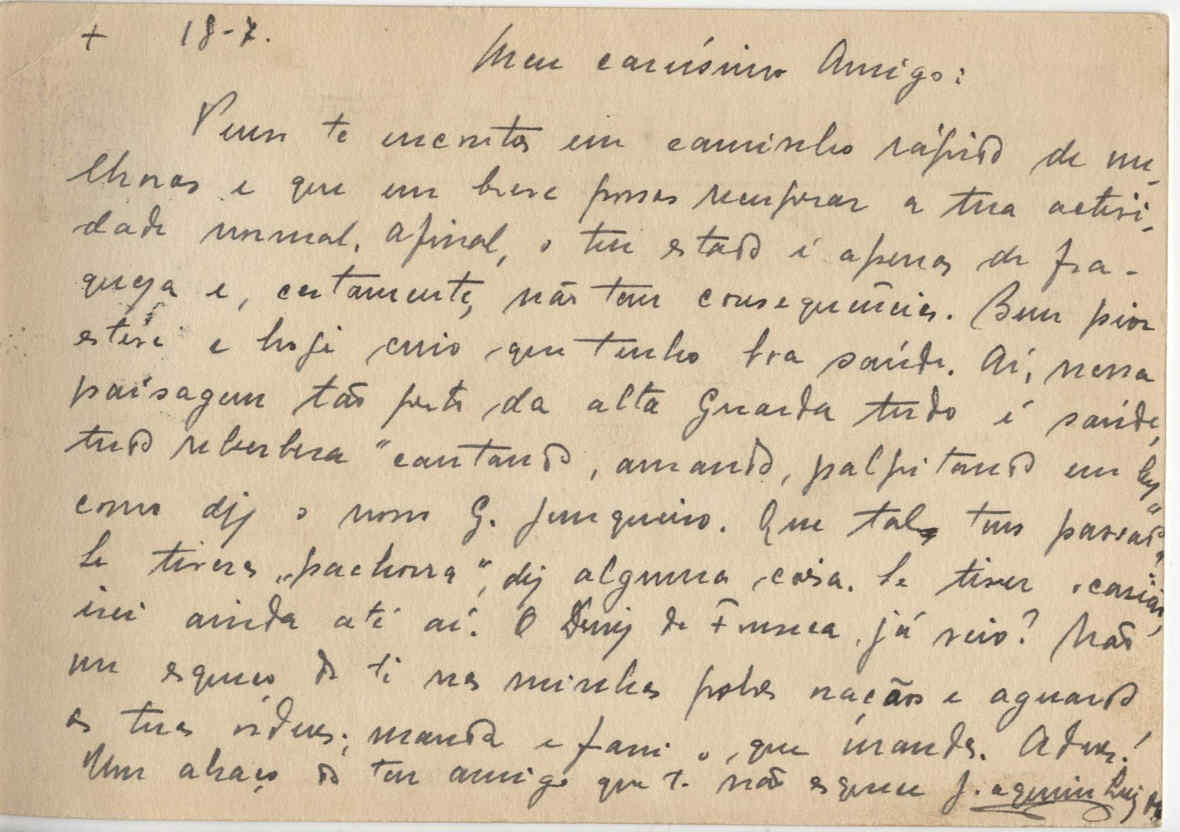 + 18-7.
Meu caríssimo Amigo:
Penso te encontras em caminho rápido de me-
lhoras e que em breve possas recuperar a tua activi-
dade normal. Afinal, o teu estado é apenas de fra-
queza e, certamente, não tem consequências. Bem pior
estive e hoje creio que tenho boa saúde. Aí, nessa
paisagem tão perto da alta Guarda tudo é saúde,
tudo reverbera "cantando, amando, palpitando em luz"
como diz o nosso G. Junqueiro. Que tal tens passado?
Se tiveres "pachorra", diz alguma coisa. Se tiver ocasião,
irei ainda até aí. O Diniz da Fonseca, já veio? Não
me esqueço de ti nas minhas pobres orações e aguardo
as tuas ordens; manda e farei o que mandas. Adeus!
Um abraço do teu amigo que te não esquece Joaquim Luiz